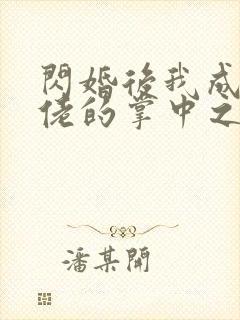 閃婚後我成
佬的掌中之
潘某開